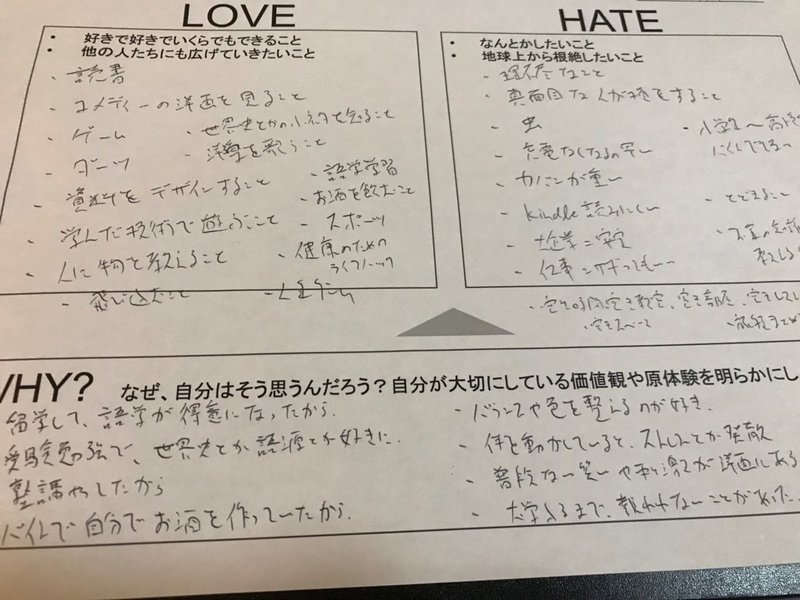 LOVE
・ 好きで好きでいくらでもできること
・ 他の人たちにも広げていきたいこと
・読書
・コメディーの洋画を見ること
・ゲーム
・世界史とかの小ネタを知ること
・ダーツ
・洋楽を歌うこと
・資料をデザインすること
・語学学習
・お酒を飲むこと
・学んだ技術で遊ぶこと
・スポーツ
・人に物を教えること
・健康のための
ライフハック
・飛び込むこと
・人生ゲーム
HATE
・ なんとかしたいこと
・ 地球上から根絶したいこと
・理不尽なこと
・真面目な人が損をすること
・虫
・小学生〜高校
・充電なくなるの早い
・カバンが重い
・Kindle読みにくい
・大企業=安定
・仕事=
・空き時間、空き教室、空き部屋、
・空きスペース
WHY? なぜ、自分はそう思うんだろう？自分が大切にしている価値観や原体験を明らかにし
留学して、語学が得意になったから。
受験勉強で、世界史とか語源とか好きに。
塾講やしたから
バイトで自分でお酒を作っていたから。
・バランスや色を整えるのが好き.
・体を動かしていると、ストレスとか発散
・普段ない笑いや刺激が洋画にある
・大学入るまで、報われないことがあった